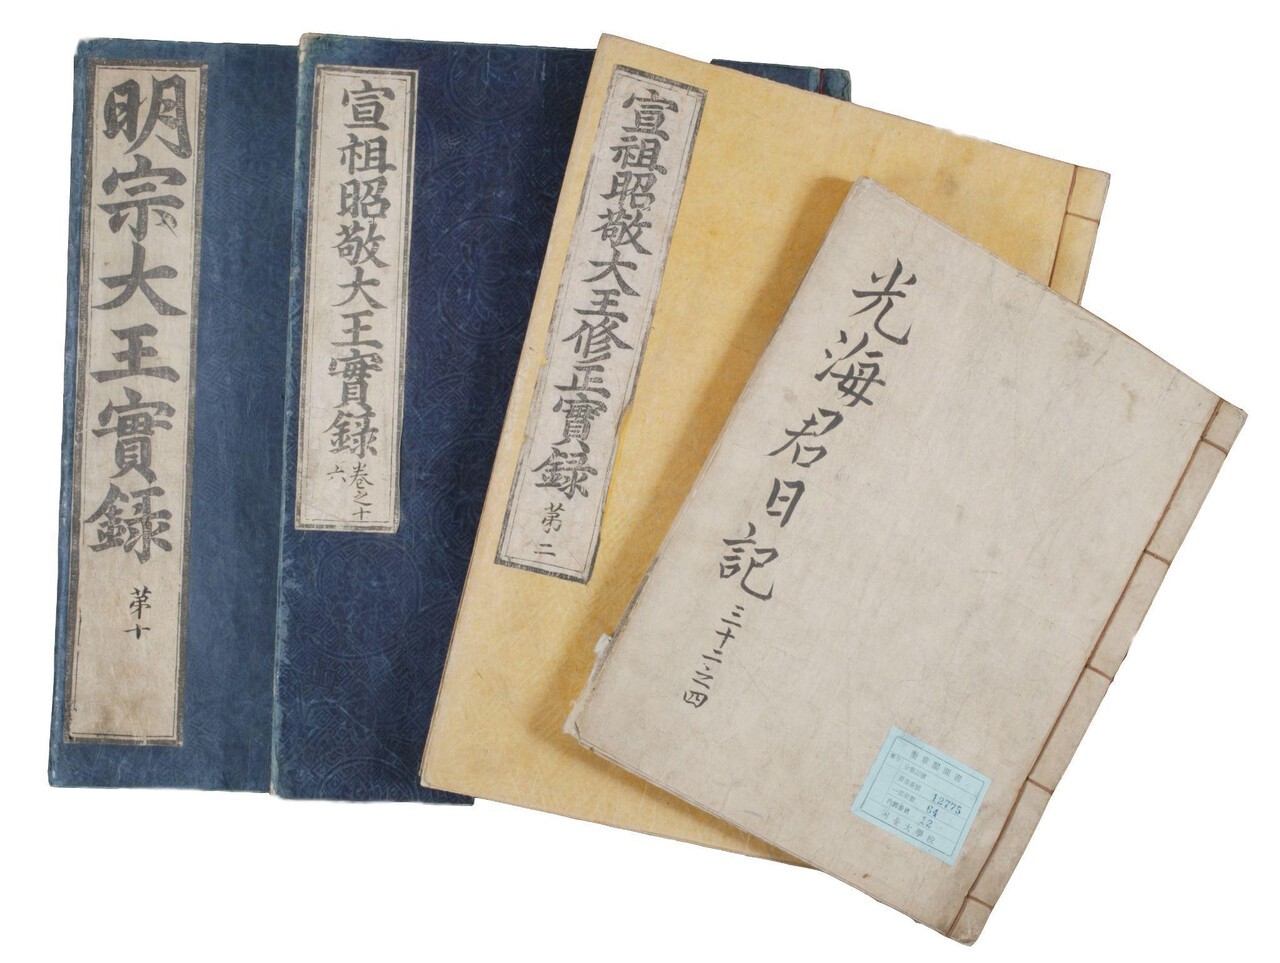 明宗大王實録
第十
宣祖昭敬大王實録
卷之十
六
宣祖昭敬大王修正實録
第二
光海君日記
三十二之四
奎章閣圖書
12775
64
12
서울大學校